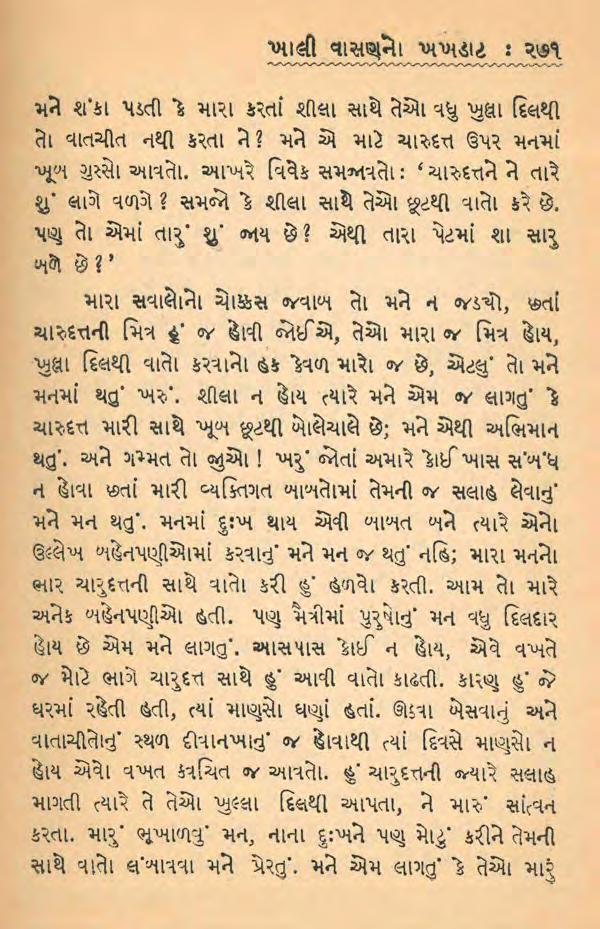 ખાલી વાસણનો ખખડાટ : ૨૭૧
મને શંકા પડતી કે મારા કરતાં શીલા સાથે તેઓ વધુ ખુલ્લા દિલથી
તો વાતચીત નથી કરતા ને? મને એ માટે ચારુદત્ત ઉપર મનમાં
ખૂબ ગુસ્સો આવતો. આખરે વિવેક સમજાવતો: ‘ચારુદત્તને ને તારે
શું લાગે વળગે? સમજો કે શીલા સાથે તેઓ છૂટથી વાતો કરે છે.
પણ તો એમાં તારું શું જાય છે? એથી તારા પેટમાં શા સારુ
બળે છે?’
મારા સવાલોનો ચોક્કસ જવાબ તો મને ન જડયો, છતાં
ચારુદત્તની મિત્ર હું જ હોવી જોઈએ, તેઓ મારા જ મિત્ર હોય,
ખુલ્લા દિલથી વાતો કરવાનો હક કેવળ મારો જ છે, એટલું તો મને
મનમાં થતું ખરું. શીલા ન હોય ત્યારે મને એમ જ લાગતું કે
ચારુદત્ત મારી સાથે ખૂબ છૂટથી બોલેચાલે છે; મને એથી અભિમાન
થતું. અને ગમ્મત તો જુઓ! ખરું જોતાં અમારે કોઈ ખાસ સંબંધ
ન હોવા છતાં મારી વ્યક્તિગત બાબતોમાં તેમની જ સલાહ લેવાનું
મને મન થતું. મનમાં દુઃખ થાય એવી બાબત બને ત્યારે એનો
ઉલ્લેખ બહેનપણીઓમાં કરવાનું મને મન જ થતું નહિ; મારા મનનો
ભાર ચારુદત્તની સાથે વાતો કરી હું હળવો કરતી. આમ તો મારે
અનેક બહેનપણીઓ હતી. પણ મૈત્રીમાં પુરુષોનું મન વધુ દિલદાર
હોય છે એમ મને લાગતું. આસપાસ કોઈ ન હોય, એવે વખતે
જ મોટે ભાગે ચારુદત્ત સાથે હું આવી વાતો કાઢતી. કારણ હું જે
ઘરમાં રહેતી હતી, ત્યાં માણસો ઘણાં હતાં. ઊઠવા બેસવાનું અને
વાતાચીતોનું સ્થળ દીવાનખાનું જ હોવાથી ત્યાં દિવસે માણસો ન
હોય એવો વખત કવચિત જ આવતો. હું ચારુદત્તની જ્યારે સલાહ
માગતી ત્યારે તે તેઓ ખુલ્લા દિલથી આપતા, ને મારું સાંત્વન
કરતા. મારું ભૂખાળવું મન, નાના દુઃખને પણ મોટું કરીને તેમની
સાથે વાતો લંબાવવા મને પ્રેરતું. મને એમ લાગતું કે તેઓ મારું